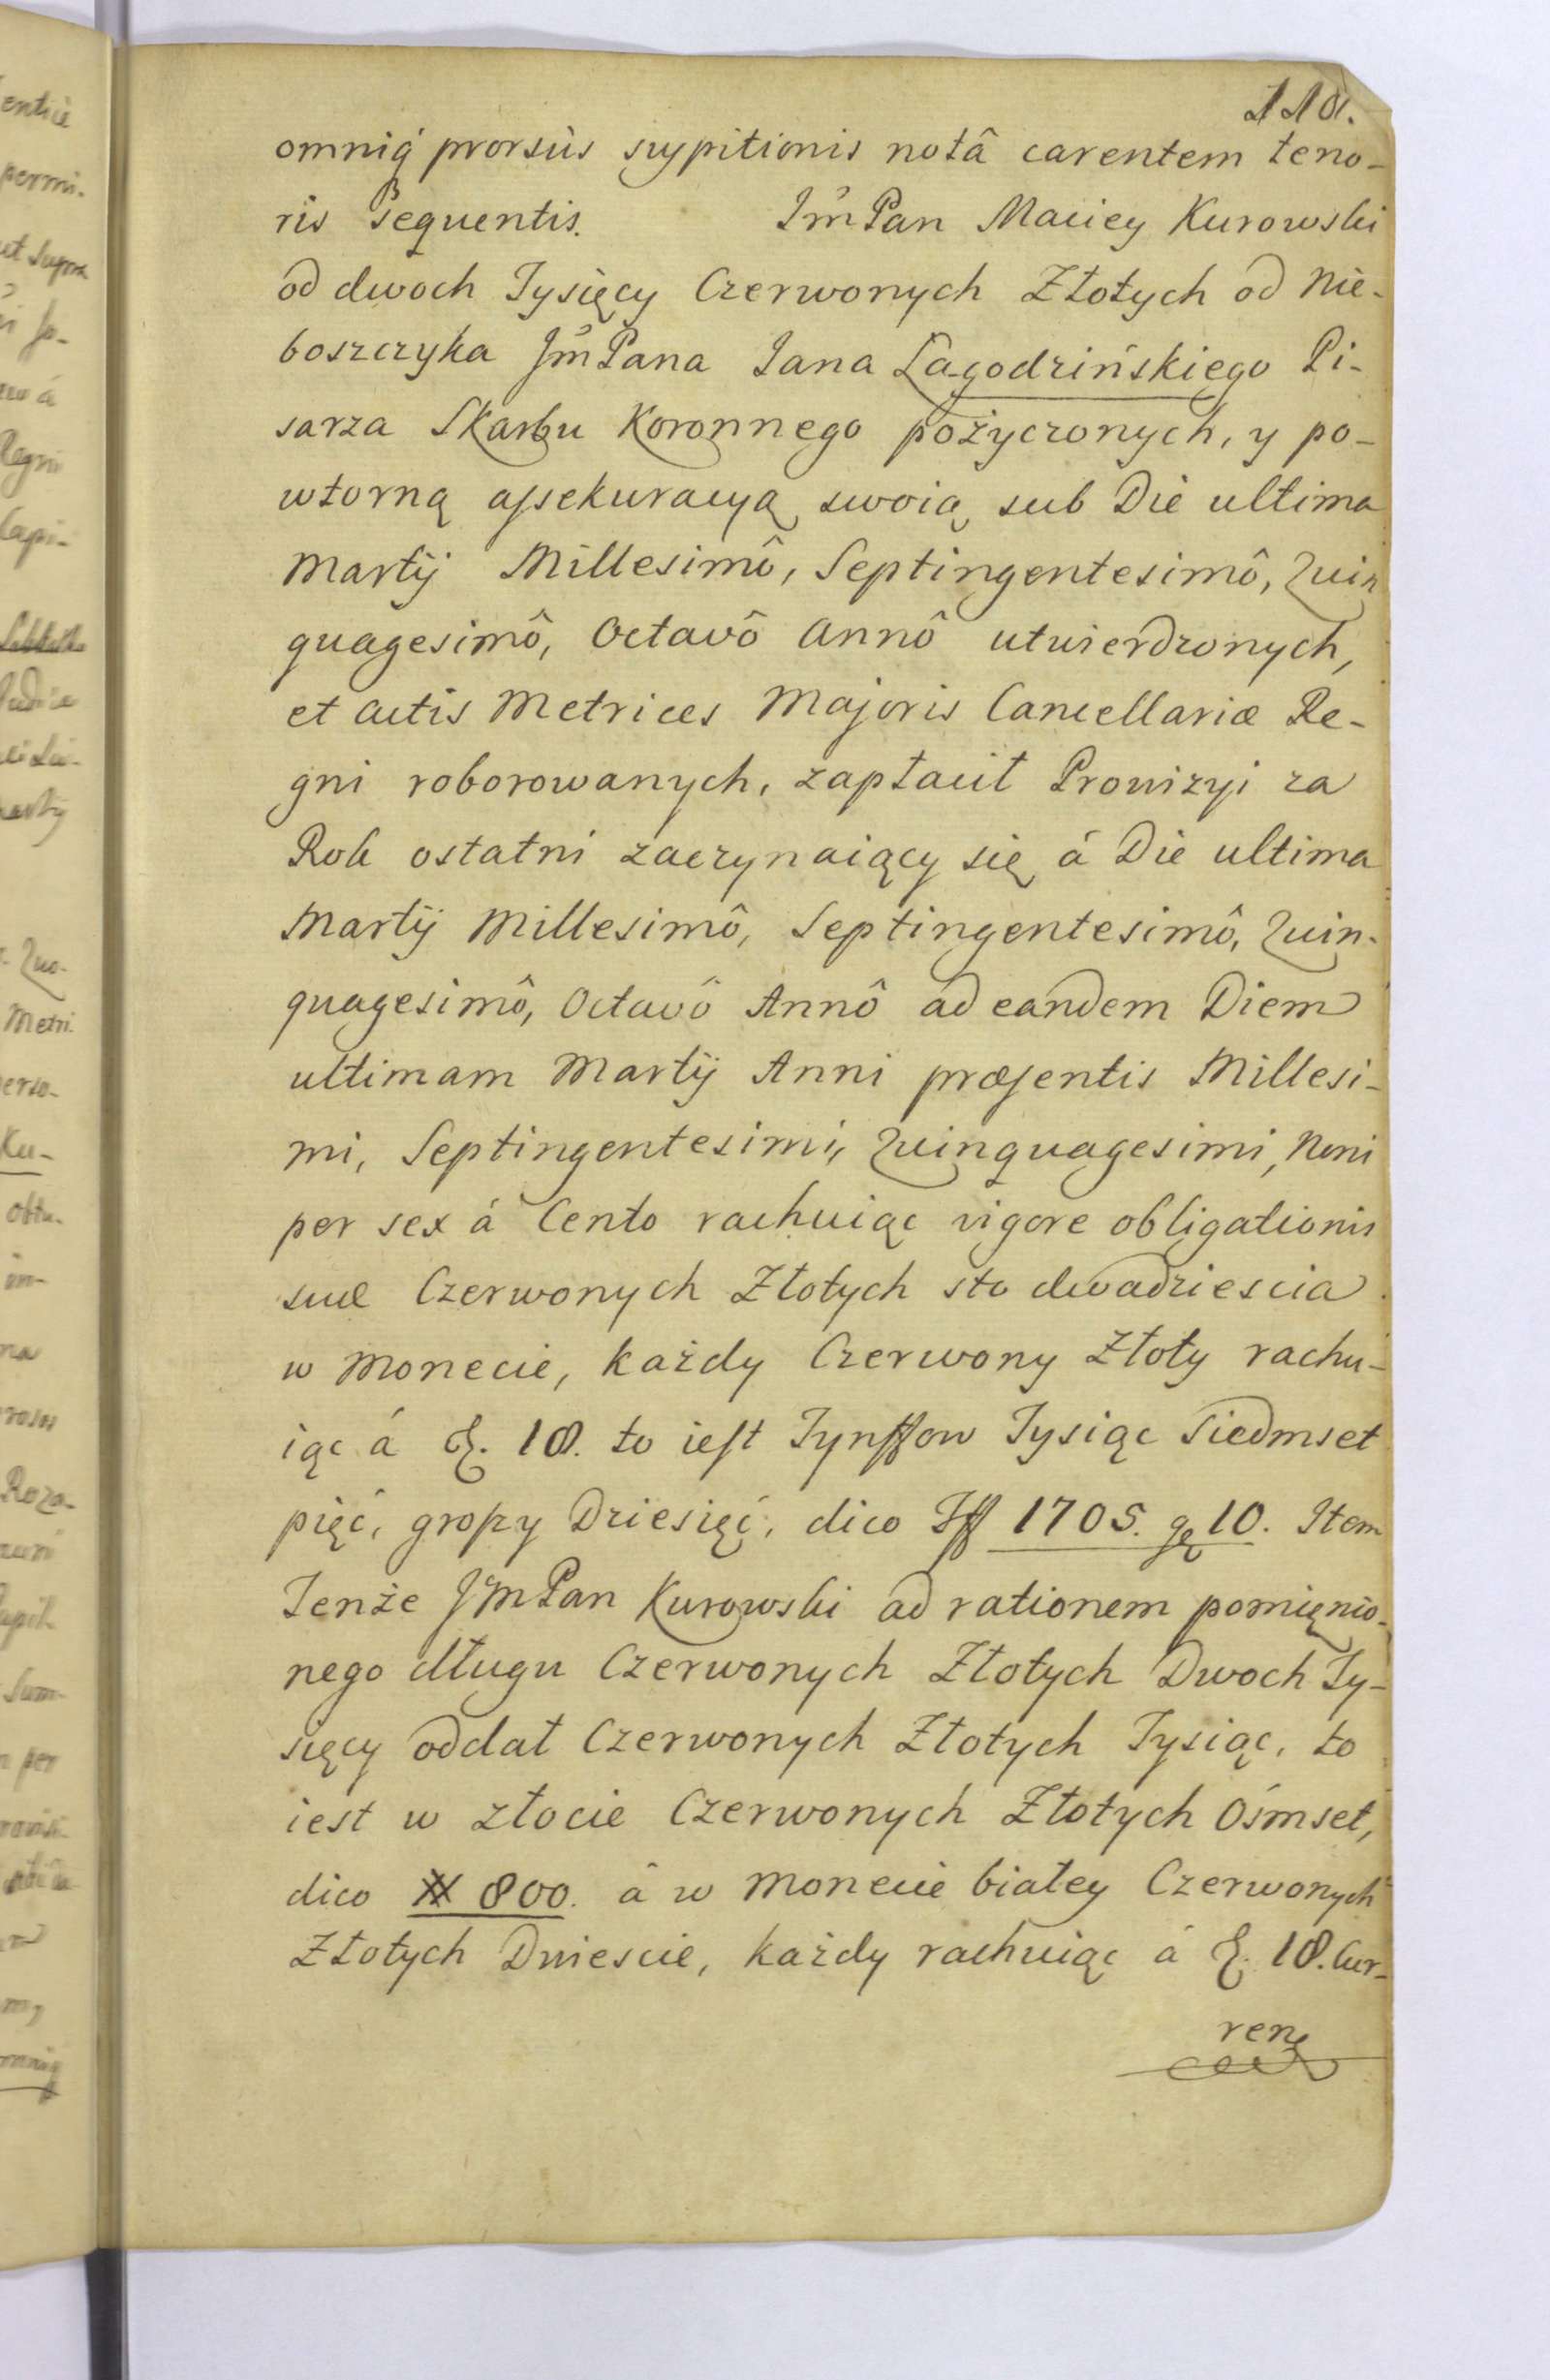 118.
omniq́ prorsùs suspitionis notâ carentem teno-
ris sequentis. Jm̃Pan Maciey Kurowski
od dwoch Tysięcy Czerwonych Złotych od Nie-
boszczyka Jm̃Pana Jana Łagodzińskiego Pi-
sarza Skarbu Koronnego pożyczonych, y po-
wtorną assekuracyą swoią sub Die ultima
Martij Millesimô, Septingentesimô, Quin
quagesimô, Octavô Annô utwierdzonych,
et actis Metrices Majoris Cancellariæ Re-
gni roborowanych, zapłacił Prowizyi za
Rok ostatni zaczynaiący się á Die ultima
Martij Millesimô, Septingentesimô, Quin-
quagesimô, Octavô Annô ad eandem Diem
ultimam Martij Anni præsentis Millesi-
mi, Septingentesimi, Quinquagesimi, Noni
per sex á Cento rachuiąc vigore obligationis
suæ Czerwonych Złotych sto dwadziescia
w Monecie, każdy Czerwony Złoty rachu-
iąc á zł. 18. to iest Tynffow Tysiąc Siedmset
pięć, groszy Dziesięć, dico Tff 1705. gę 10. Item
Tenże JmPan Kurowski ad rationem pomięnio-
nego długu Czerwonych Złotych Dwoch Ty-
sięcy oddał Czerwonych Złotych Tysiąc, to
iest w złocie Czerwonych Złotych Ośmset,
dico # 800. â w Monecie białey Czerwonych
Złotych Dwiescie, każdy rachuiąc á zł. 18. Cur-
renę